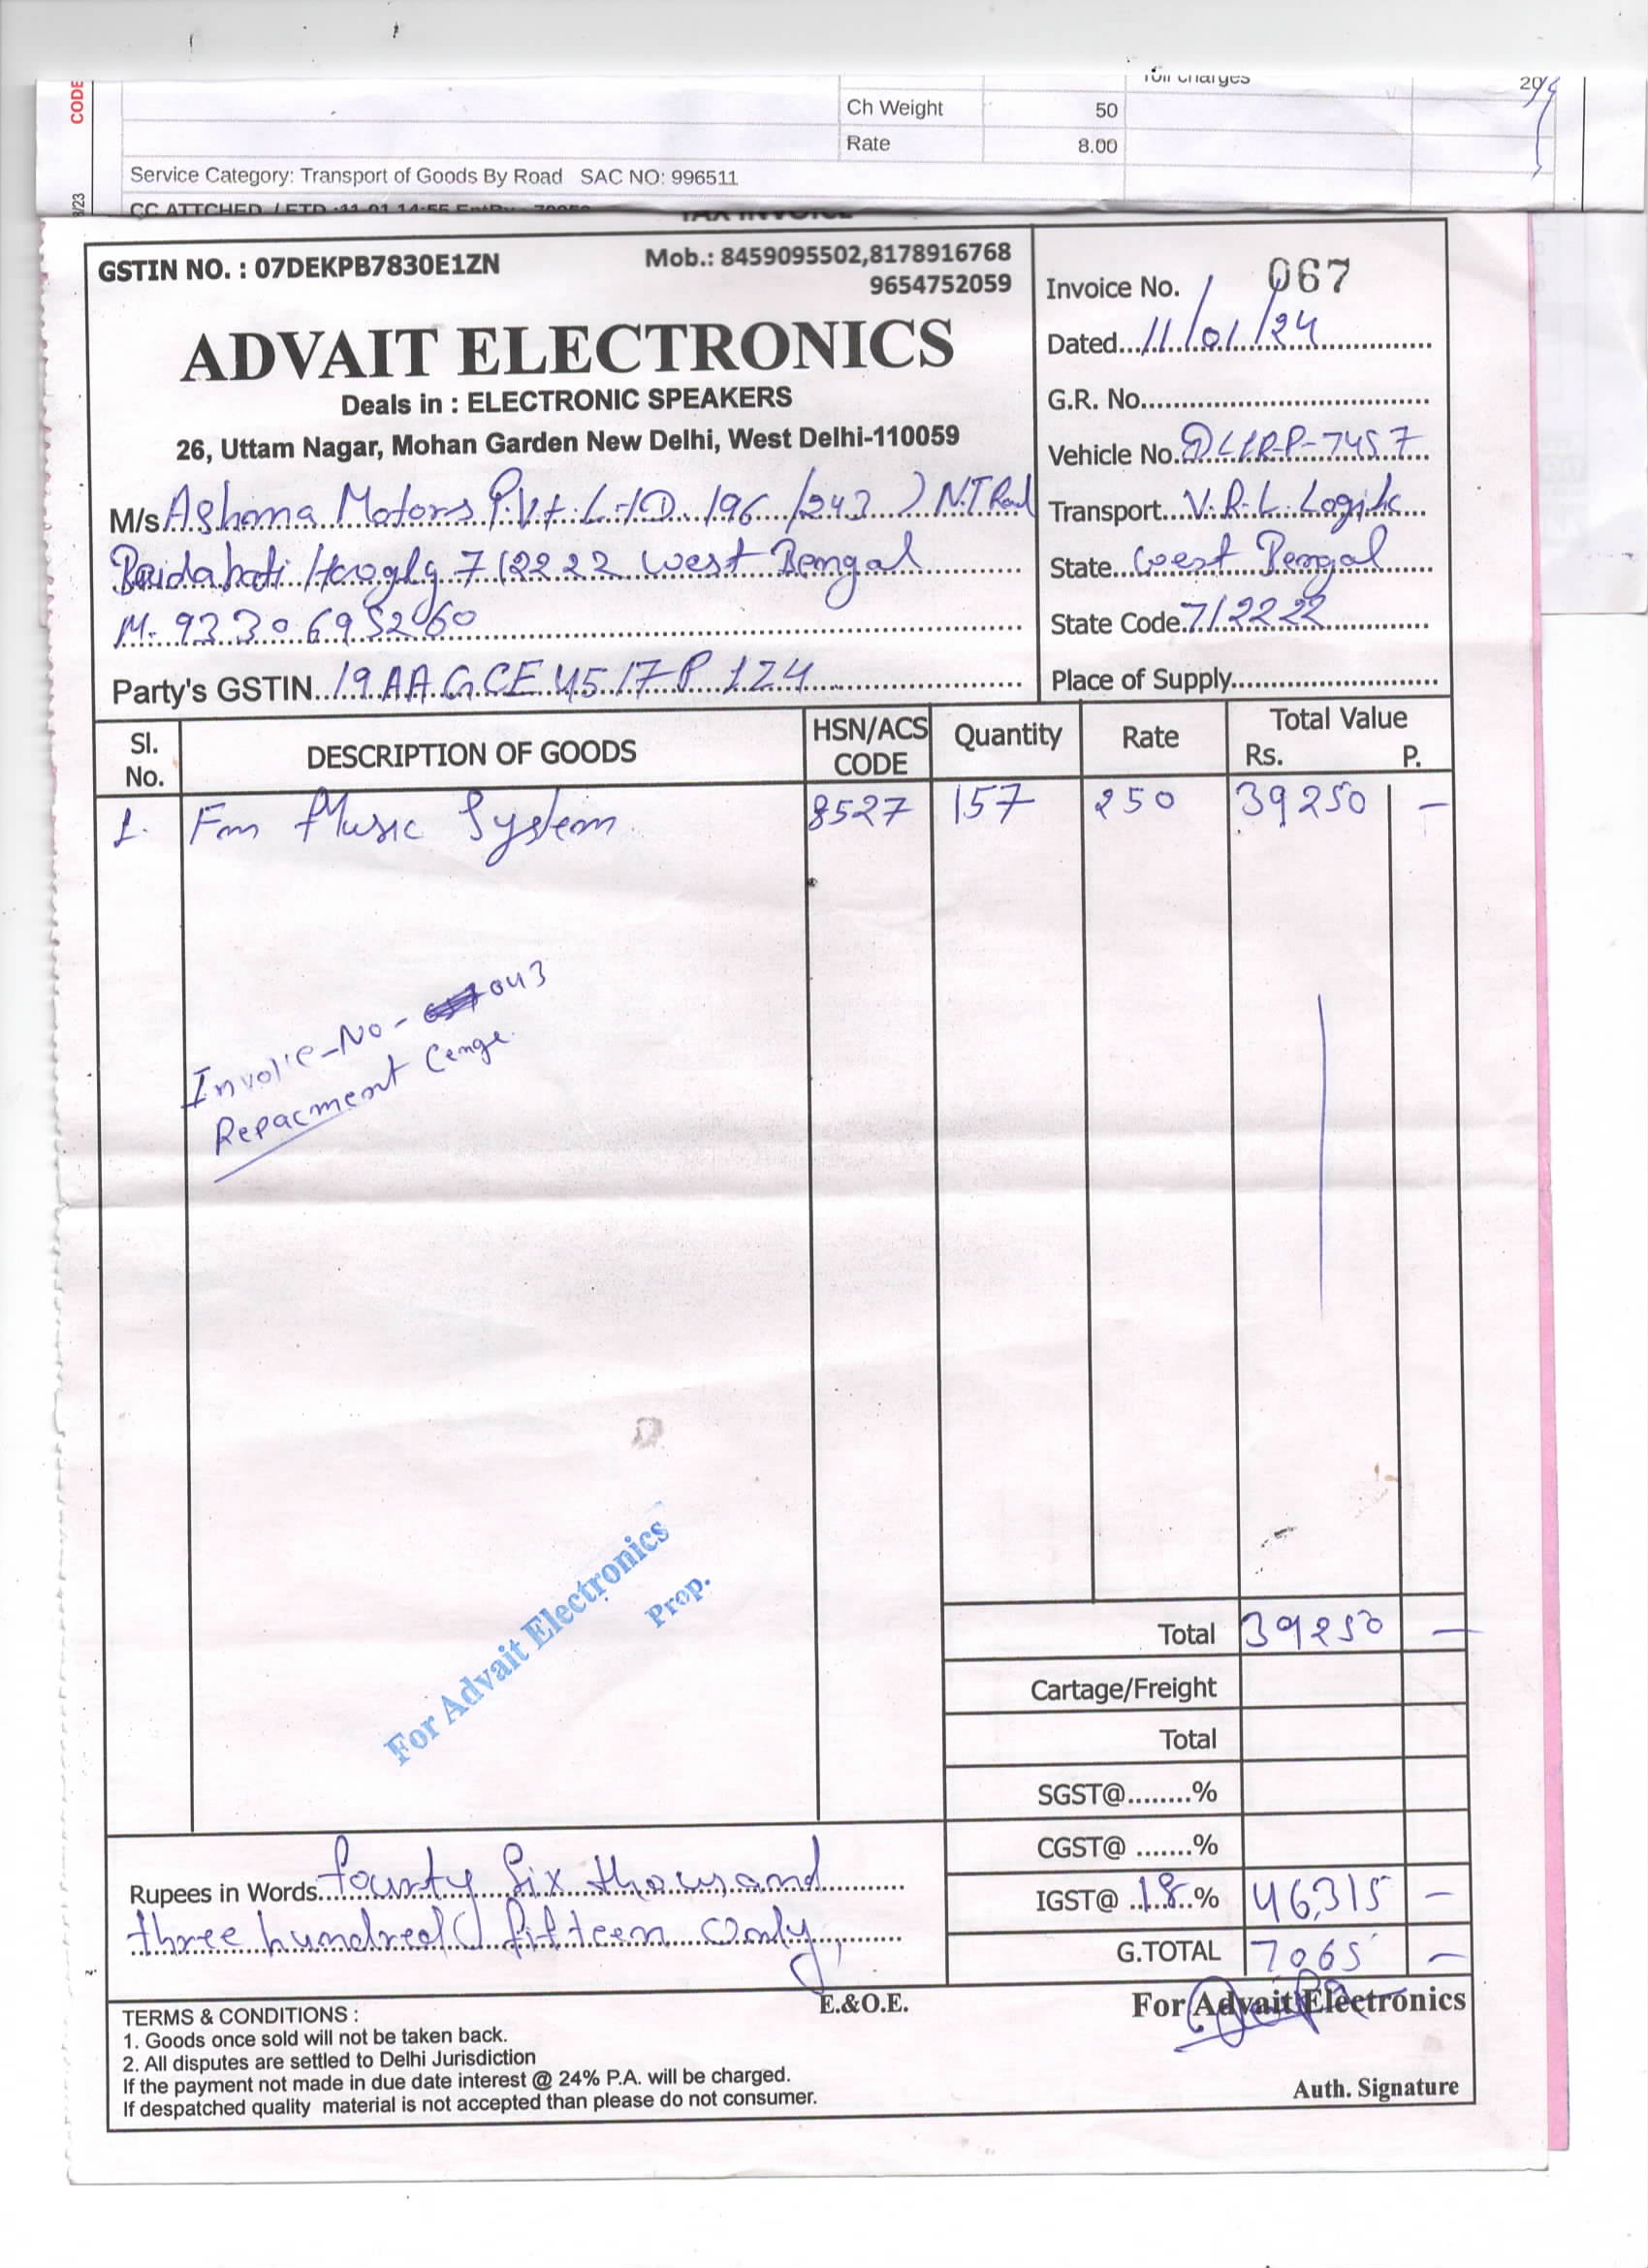 CODE
Toll Charges
Ch Weight 50
Rate 8.00
Service Category: Transport of Goods By Road SAC NO: 996511
/23
TAX INVOICE
GSTIN NO. : 07DEKPB7830E1ZN
Mob.: 8459095502,8178916768
9654752059
ADVAIT ELECTRONICS
Deals in : ELECTRONIC SPEAKERS
26, Uttam Nagar, Mohan Garden New Delhi, West Delhi-110059
Invoice No. 067
Dated...11/01/24
G.R. No.
Vehicle No. DL1RP-7457
Transport...V.R.L. Logistic
State...West Bengal
State Code.712222
Place of Supply
M/s Ashona Motors P.Vt. LTD. 196/243 ) N.T Road
Baidabati Hoogly 712222 West Bengal
M- 9330695260
Party's GSTIN...19AAGCE4517P1Z4
Sl. No. DESCRIPTION OF GOODS HSN/ACS CODE Quantity Rate Total Value Rs. P.
1. Fm Music System 8527 157 250 39250 —
Invoice-No- 043
Repacment Cenge.
For Advait Electronics
Prop.
Total 39250 —
Cartage/Freight
Total
SGST@........%
CGST@ .......%
IGST@ ..18..% 46,315 —
G.TOTAL 7065 —
Rupees in Words...fourty Six thousand
three hundred fifteen only,
E.&O.E.
For Advait Electronics
TERMS & CONDITIONS :
1. Goods once sold will not be taken back.
2. All disputes are settled to Delhi Jurisdiction
If the payment not made in due date interest @ 24% P.A. will be charged.
If despatched quality material is not accepted than please do not consumer.
Auth. Signature